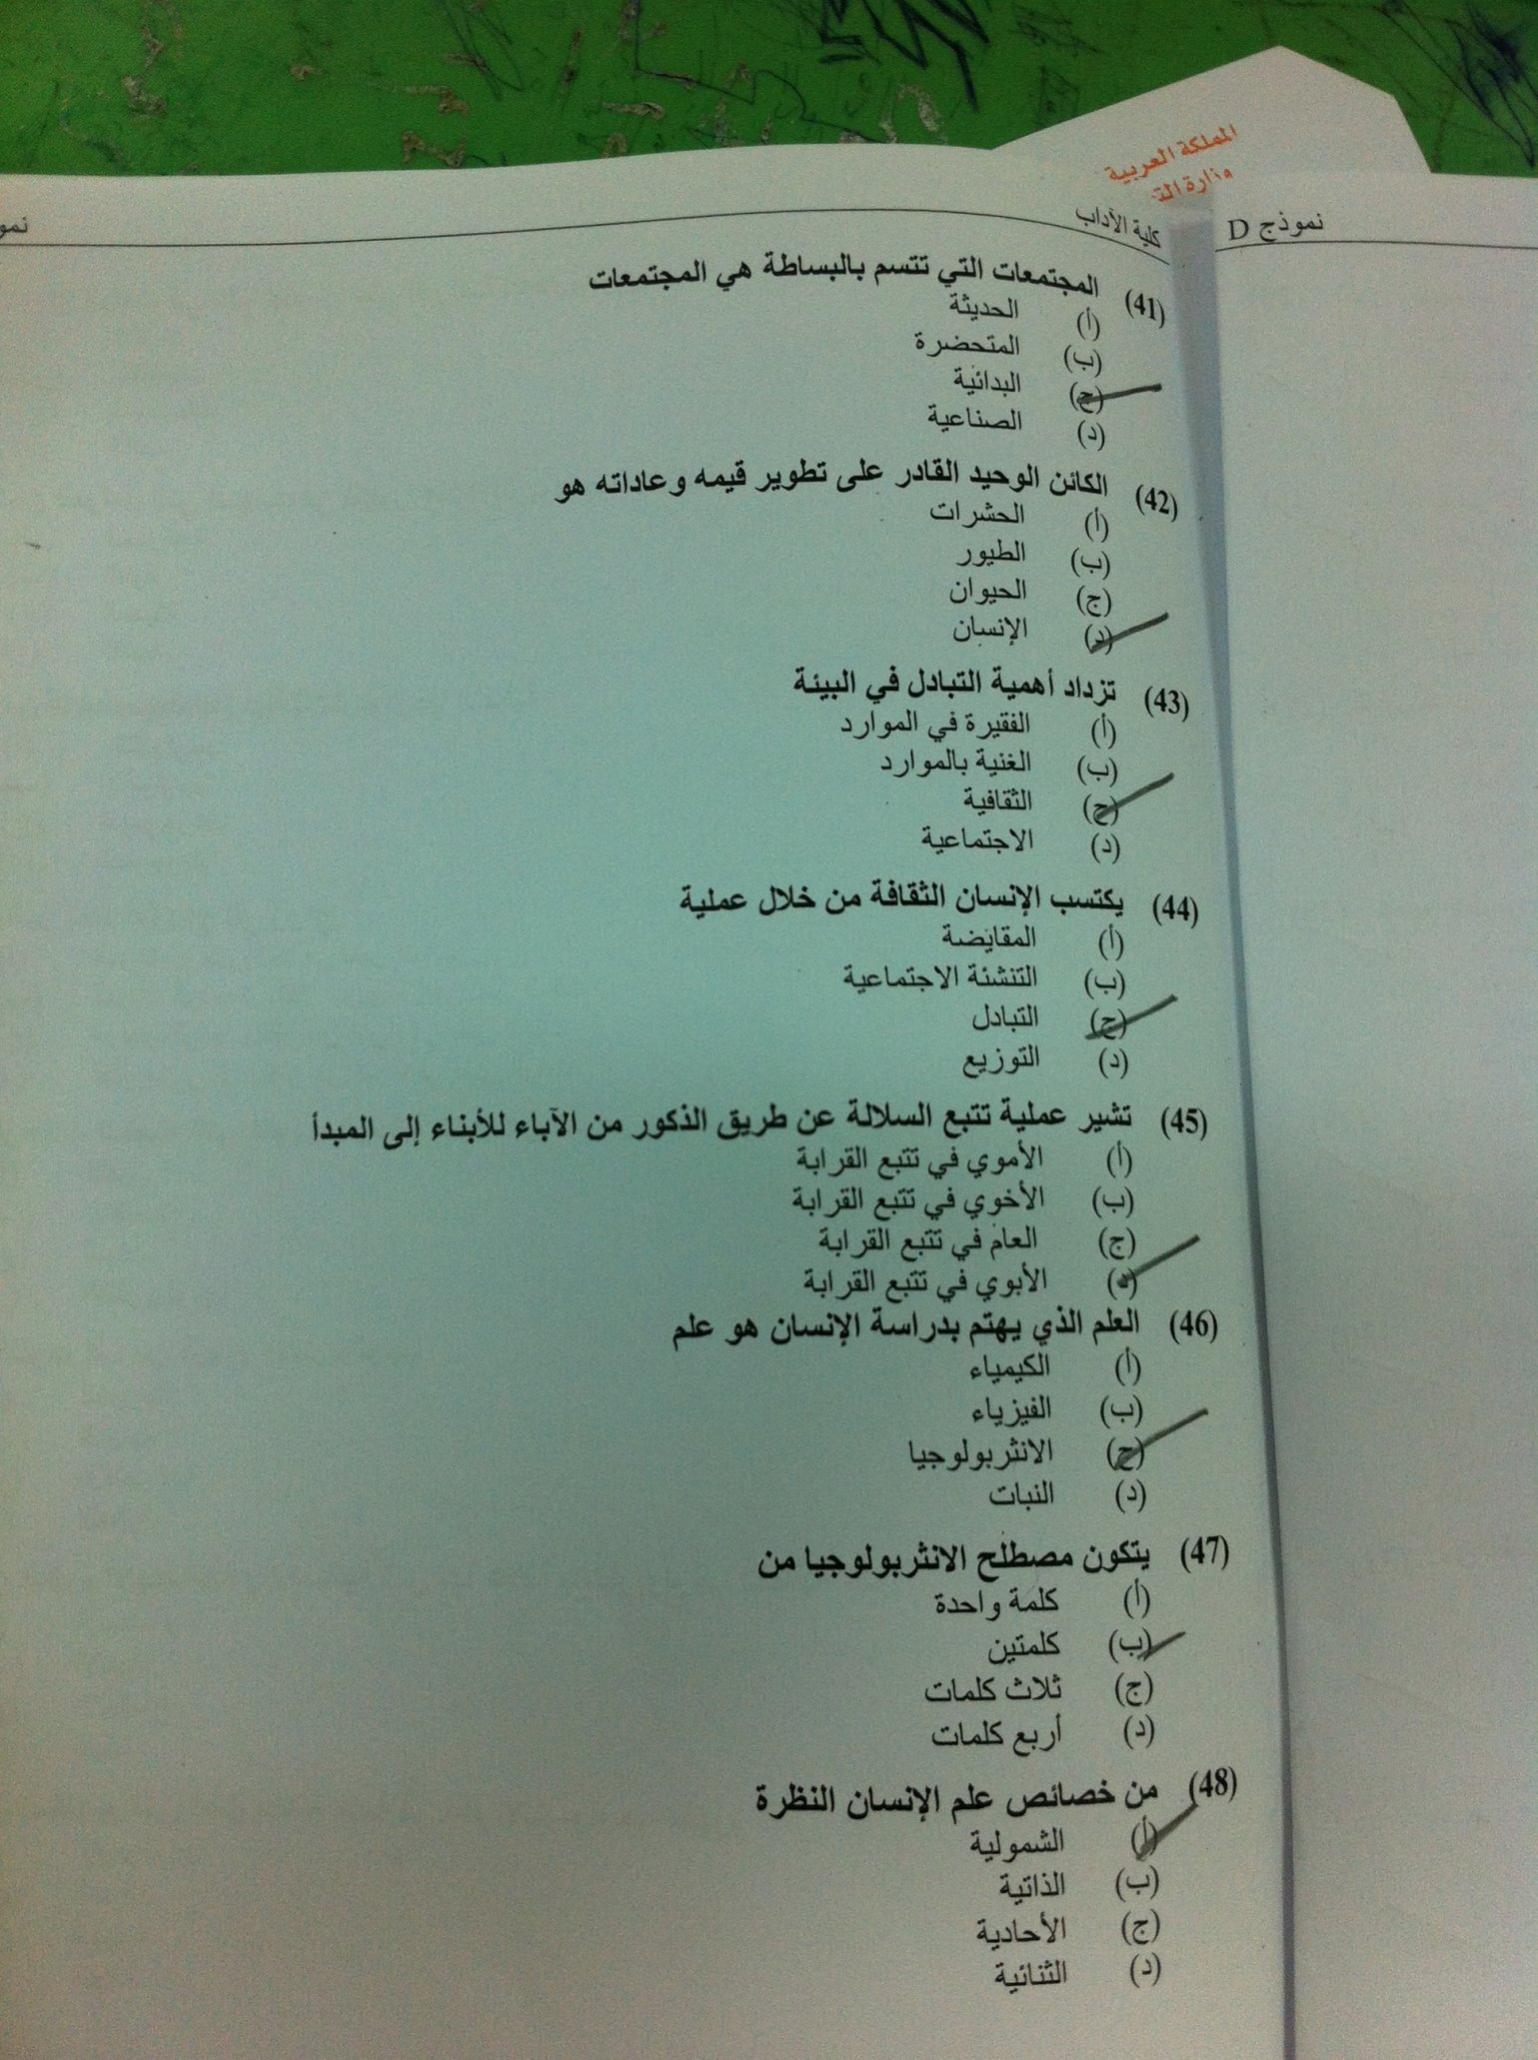 المملكة العربية
كلية الآداب
نموذج D
(41) المجتمعات التي تتسم بالبساطة هي المجتمعات
(أ) الحديثة
(ب) المتحضرة
(ج) البدائية
(د) الصناعية
(42) الكائن الوحيد القادر على تطوير قيمه وعاداته هو
(أ) الحشرات
(ب) الطيور
(ج) الحيوان
(د) الإنسان
(43) تزداد أهمية التبادل في البيئة
(أ) الفقيرة في الموارد
(ب) الغنية بالموارد
(ج) الثقافية
(د) الاجتماعية
(44) يكتسب الإنسان الثقافة من خلال عملية
(أ) المقايضة
(ب) التنشئة الاجتماعية
(ج) التبادل
(د) التوزيع
(45) تشير عملية تتبع السلالة عن طريق الذكور من الآباء للأبناء إلى المبدأ
(أ) الأموي في تتبع القرابة
(ب) الأخوي في تتبع القرابة
(ج) العام في تتبع القرابة
(د) الأبوي في تتبع القرابة
(46) العلم الذي يهتم بدراسة الإنسان هو علم
(أ) الكيمياء
(ب) الفيزياء
(ج) الانثربولوجيا
(د) النبات
(47) يتكون مصطلح الانثربولوجيا من
(أ) كلمة واحدة
(ب) كلمتين
(ج) ثلاث كلمات
(د) أربع كلمات
(48) من خصائص علم الإنسان النظرة
(أ) الشمولية
(ب) الذاتية
(ج) الأحادية
(د) الثنائية